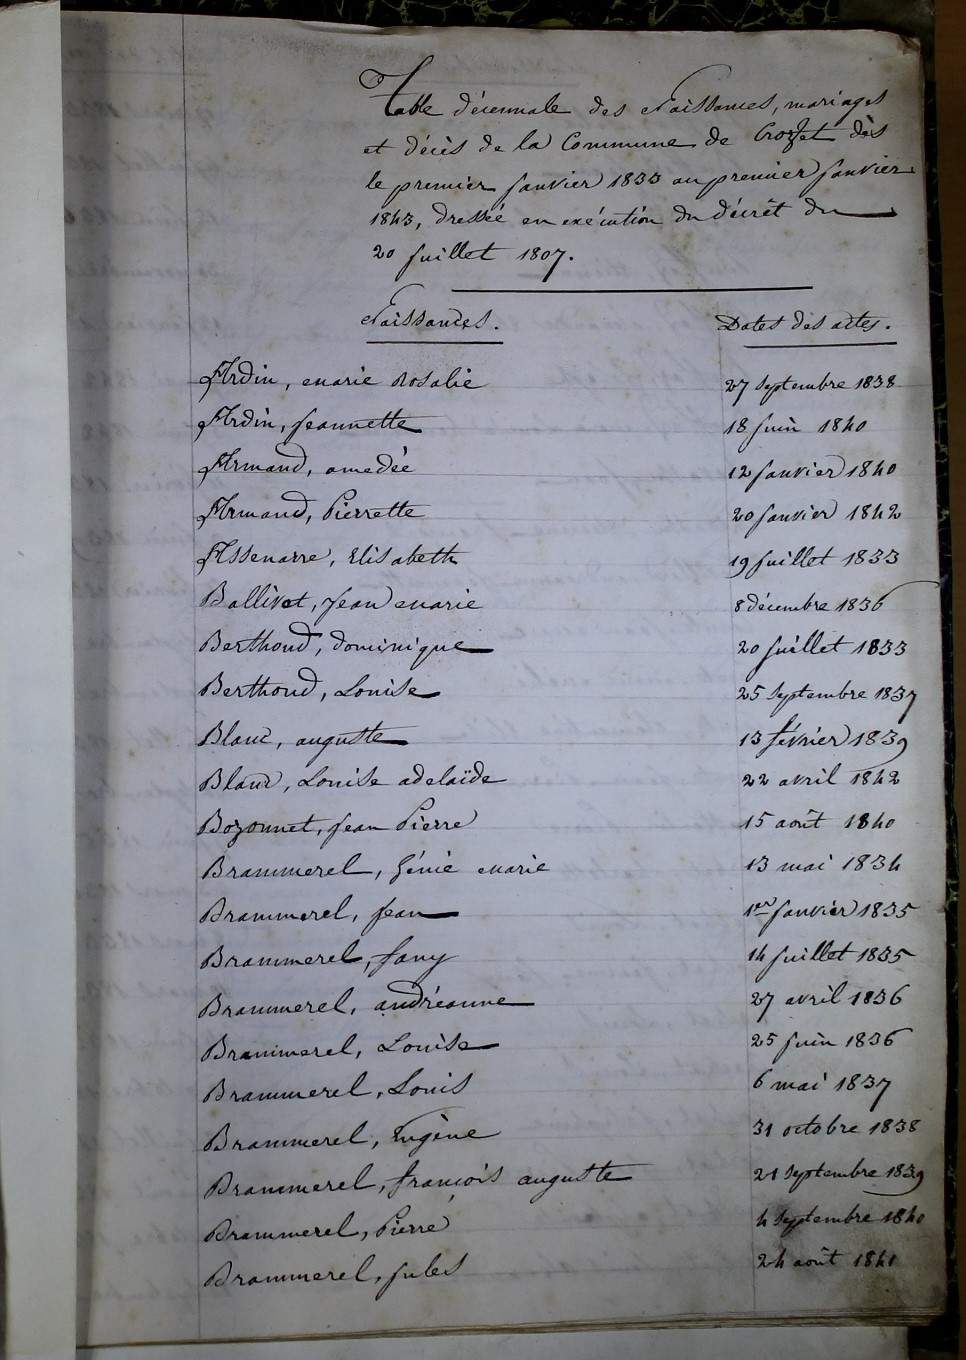 Table décennale des Naissances, mariages
et décès de la Commune de Crozet dès
le premier Janvier 1833 au premier Janvier
1843, dressée en exécution du décrêt du
20 Juillet 1807.
Naissances. Dates des actes.
Ardin, Marie Rosalie 27 Septembre 1838
Ardin, Jeannette 18 Juin 1840
Armand, amedée 12 Janvier 1840
Armand, Pierrette 20 Janvier 1842
Assenarre, Elisabeth 19 Juillet 1833
Ballivet, Jean Marie 8 décembre 1836
Berthoud, Dominique 20 Juillet 1833
Berthoud, Louise 25 Septembre 1837
Blanc, auguste 13 février 1839
Blanc, Louise adelaïde 22 avril 1842
Bozonnet, Jean Pierre 15 août 1840
Brammerel, Génie Marie 13 mai 1834
Brammerel, Jean 1er Janvier 1835
Brammerel, fany 14 Juillet 1835
Brammerel, andréanne 27 avril 1836
Brammerel, Louise 25 Juin 1836
Brammerel, Louis 6 mai 1837
Brammerel, Eugène 31 octobre 1838
Brammerel, françois auguste 21 Septembre 1839
Brammerel, Pierre 4 Septembre 1840
Brammerel, Jules 24 août 1841